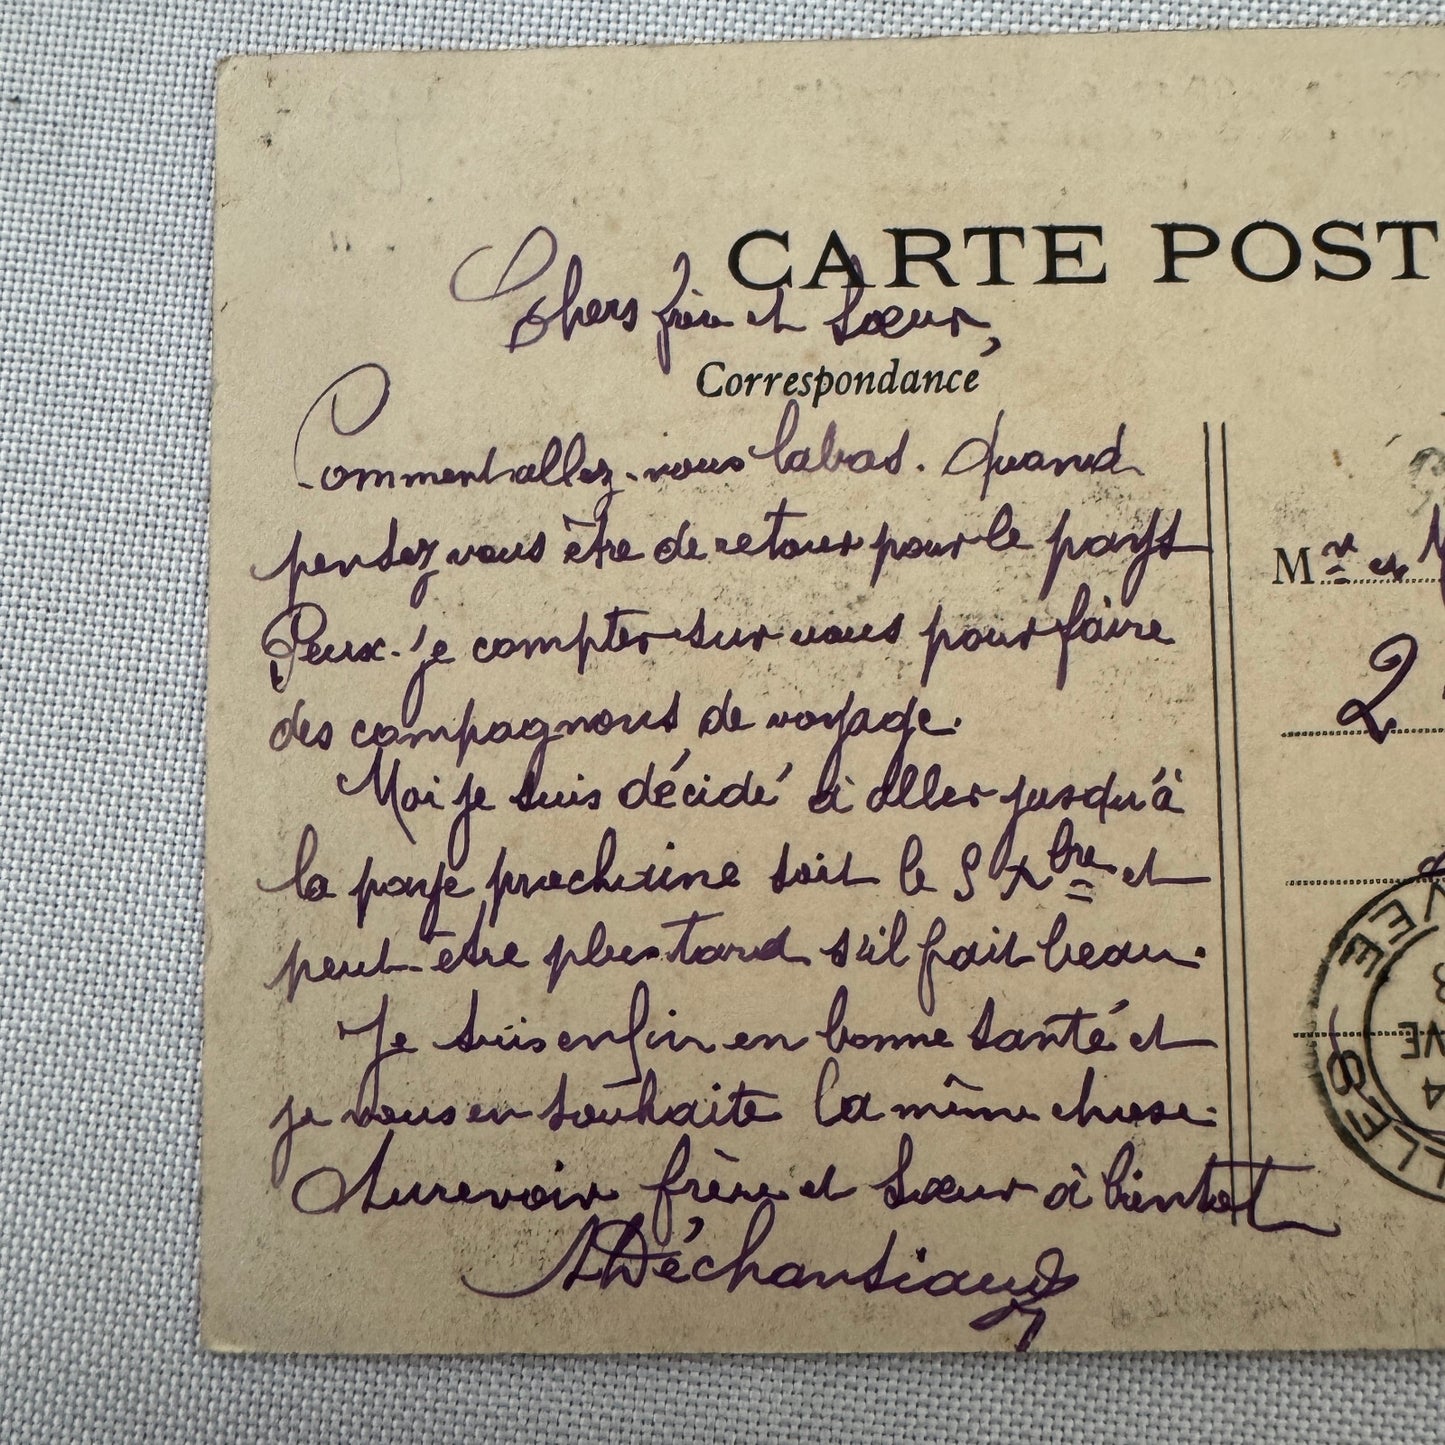 CARTE POST
Chers frère et Sœur,
Correspondance
Comment allez-vous labas. Quand
pensez vous être de retour pour le pays
Peux-je compter sur vous pour faire
des compagnons de voyage.
Moi je suis décidé à aller jusqu'à
la paye prochaine soit le 5 Xbre et
peut-être plus tard s'il fait beau.
Je suis enfin en bonne santé et
je vous en souhaite la même chose.
Aurevoir frère et Sœur à bientot
Déchansiaud
Mr et
2